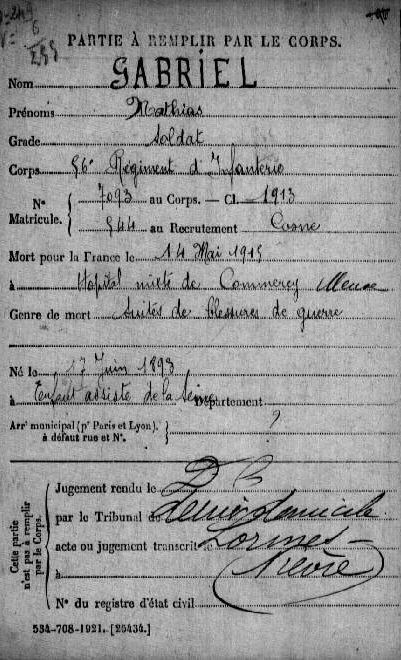 PARTIE À REMPLIR PAR LE CORPS.
Nom GABRIEL
Prénoms Mathias
Grade Soldat
Corps 56e Régiment d'Infanterie
No Matricule. { 7093 au Corps. — Cl. 1913
544 au Recrutement Cosne
Mort pour la France le 14 Mai 1915
à Hôpital mixte de Commercy Meuse
Genre de mort Suites de blessures de guerre
Né le 17 Juin 1893
à Enfant assisté de la Seine Département
Arrt municipal (pr Paris et Lyon), à défaut rue et No. } ?
Cette partie n'est pas à remplir par le Corps.
Jugement rendu le D C
par le Tribunal de dernier domicile
acte ou jugement transcrit le Lormes -
à Nièvre
No du registre d'état civil
534-708-1921. [26434.]